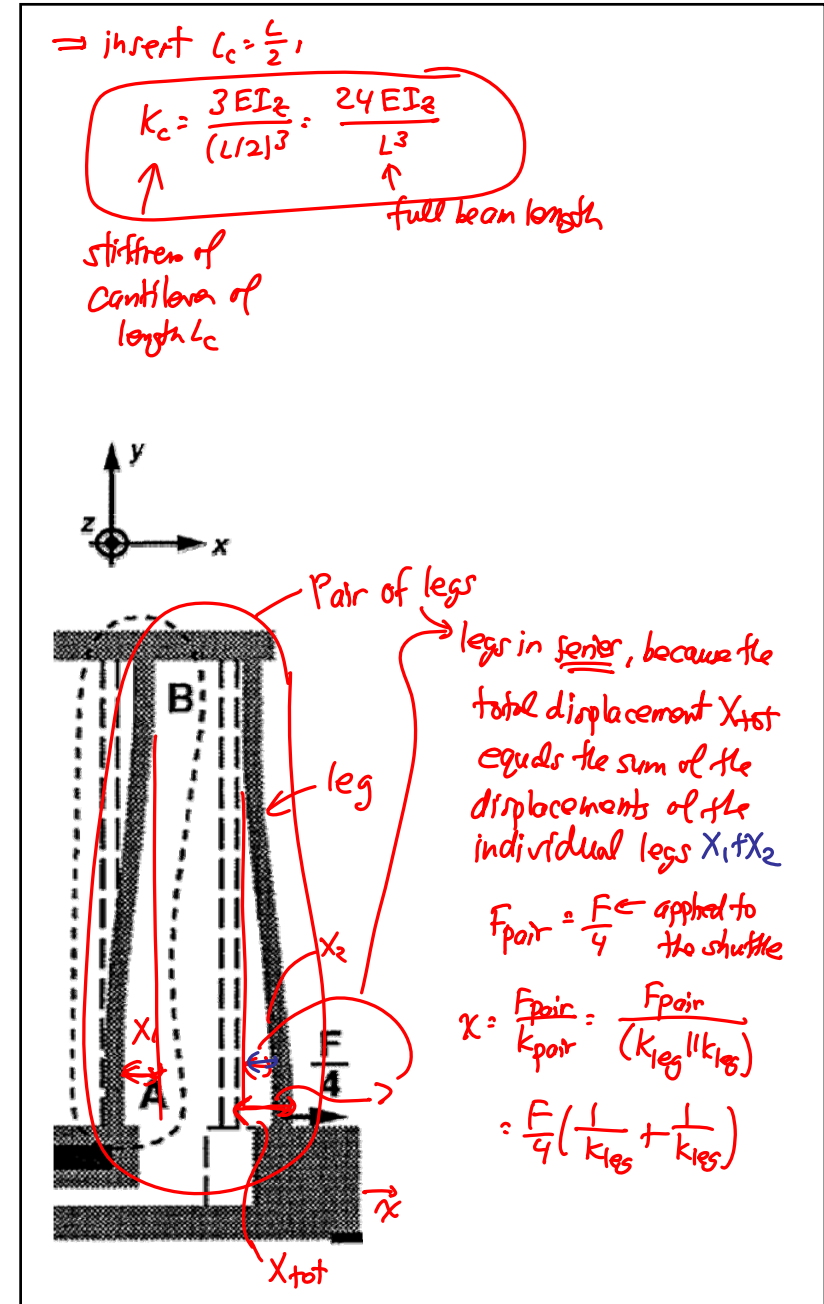 ⇒ insert Lc = L/2,
Kc = 3EIz/(L/2)³ = 24EIz/L³
full beam length
stiffness of
cantilever of
length Lc
y
z
x
Pair of legs
legs in series, because the
total displacement Xtot
equals the sum of the
displacements of the
individual legs X1+X2
B
leg
Fpair = F/4 ← applied to
the shuttle
X2
x = Fpair/kpair = Fpair/(kleg || kleg)
X1
A
F/4
= F/4 (1/kleg + 1/kleg)
x
Xtot